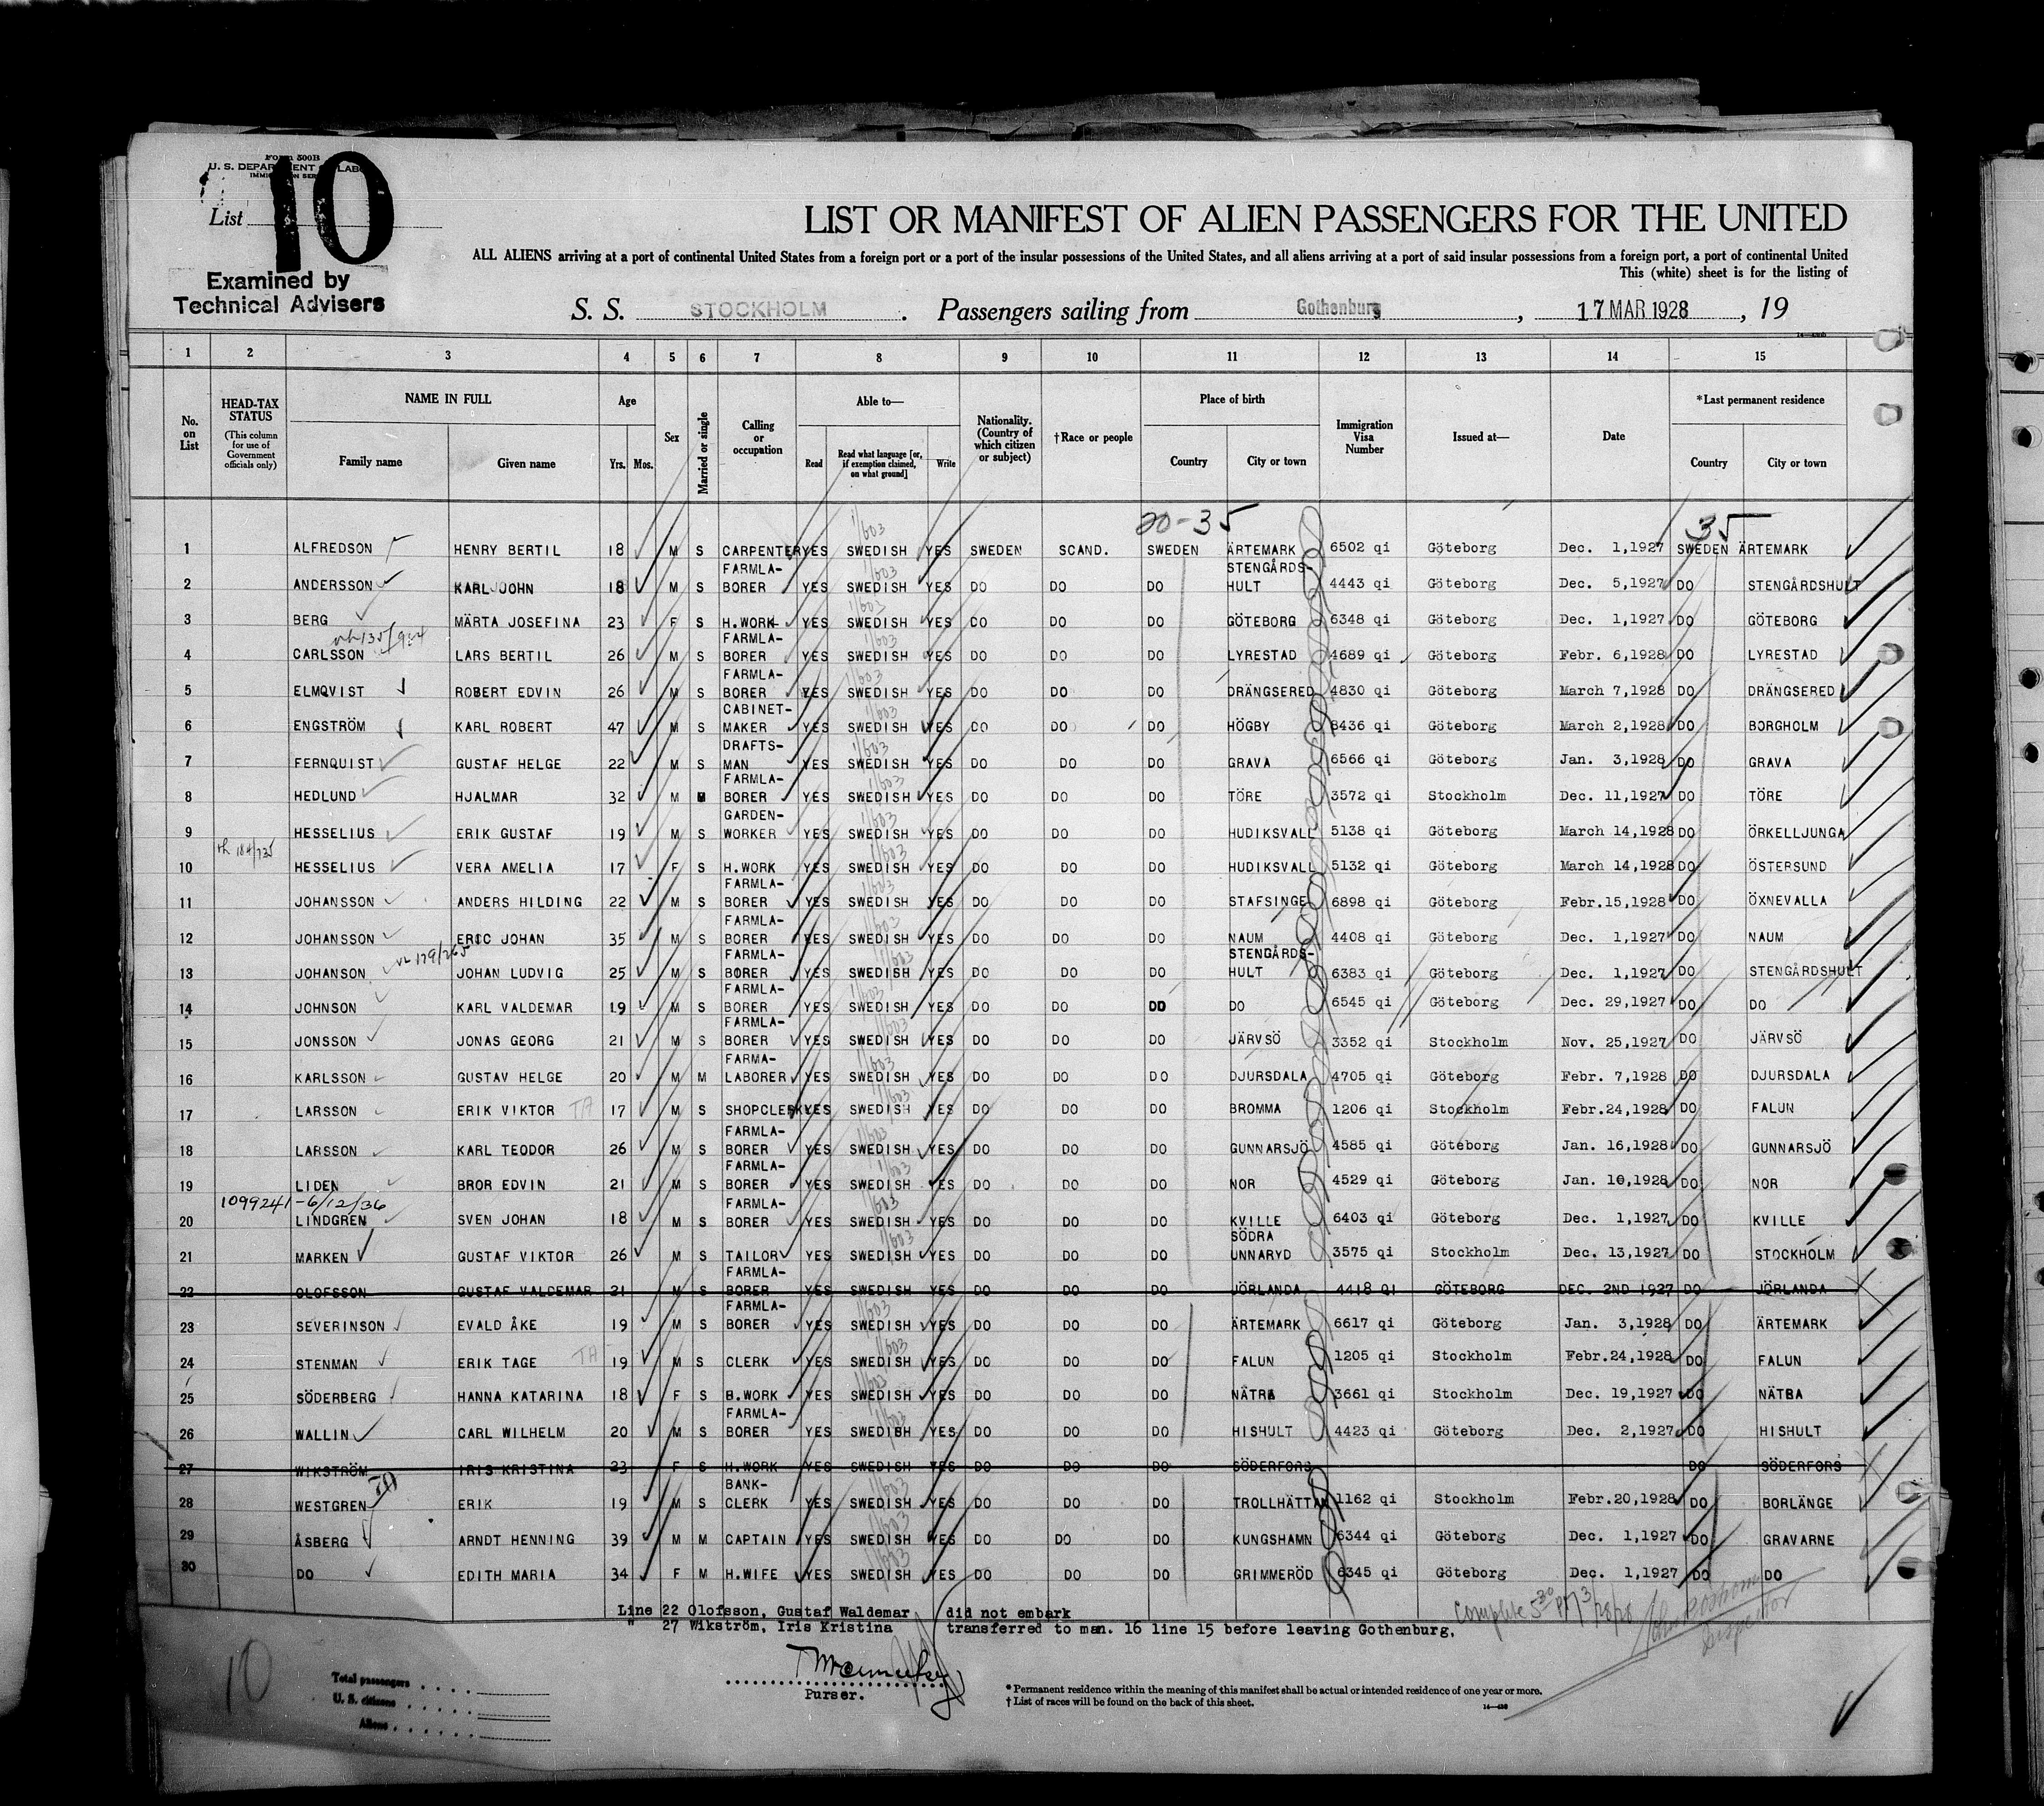 Form 500B
U. S. DEPARTMENT OF LABOR
IMMIGRATION SERVICE
List 10
Examined by
Technical Advisers
LIST OR MANIFEST OF ALIEN PASSENGERS FOR THE UNITED
ALL ALIENS arriving at a port of continental United States from a foreign port or a port of the insular possessions of the United States, and all aliens arriving at a port of said insular possessions from a foreign port, a port of continental United
This (white) sheet is for the listing of
S. S. STOCKHOLM . Passengers sailing from Gothenburg , 17 MAR 1928 , 19
1 2 3 4 5 6 7 8 9 10 11 12 13 14 15
No. on List
HEAD-TAX STATUS (This column for use of Government officials only)
NAME IN FULL
Family name Given name
Age Yrs. Mos.
Sex
Married or single
Calling or occupation
Able to—
Read Read what language [or, if exemption claimed, on what ground] Write
Nationality. (Country of which citizen or subject)
†Race or people
Place of birth
Country City or town
Immigration Visa Number
Issued at—
Date
*Last permanent residence
Country City or town
20-35 35
1 ALFREDSON HENRY BERTIL 18 M S CARPENTER YES SWEDISH YES SWEDEN SCAND. SWEDEN ÄRTEMARK 6502 qi Göteborg Dec. 1,1927 SWEDEN ÄRTEMARK
2 ANDERSSON KARL JOHN 18 M S FARMLA-BORER YES SWEDISH YES DO DO DO STENGÅRDS-HULT 4443 qi Göteborg Dec. 5,1927 DO STENGÅRDSHULT
3 BERG MÄRTA JOSEFINA 23 F S H.WORK YES SWEDISH YES DO DO DO GÖTEBORG 6348 qi Göteborg Dec. 1,1927 DO GÖTEBORG
4 CARLSSON LARS BERTIL 26 M S FARMLA-BORER YES SWEDISH YES DO DO DO LYRESTAD 4689 qi Göteborg Febr. 6,1928 DO LYRESTAD
5 ELMQVIST ROBERT EDVIN 26 M S FARMLA-BORER YES SWEDISH YES DO DO DO DRÄNGSERED 4830 qi Göteborg March 7,1928 DO DRÄNGSERED
6 ENGSTRÖM KARL ROBERT 47 M S CABINET-MAKER YES SWEDISH YES DO DO DO HÖGBY 8436 qi Göteborg March 2,1928 DO BORGHOLM
7 FERNQUIST GUSTAF HELGE 22 M S DRAFTS-MAN YES SWEDISH YES DO DO DO GRAVA 6566 qi Göteborg Jan. 3,1928 DO GRAVA
8 HEDLUND HJALMAR 32 M M FARMLA-BORER YES SWEDISH YES DO DO DO TÖRE 3572 qi Stockholm Dec. 11,1927 DO TÖRE
9 HESSELIUS ERIK GUSTAF 19 M S GARDEN-WORKER YES SWEDISH YES DO DO DO HUDIKSVALL 5138 qi Göteborg March 14,1928 DO ÖRKELLJUNGA
10 HESSELIUS VERA AMELIA 17 F S H.WORK YES SWEDISH YES DO DO DO HUDIKSVALL 5132 qi Göteborg March 14,1928 DO ÖSTERSUND
11 JOHANSSON ANDERS HILDING 22 M S FARMLA-BORER YES SWEDISH YES DO DO DO STAFSINGE 6898 qi Göteborg Febr.15,1928 DO ÖXNEVALLA
12 JOHANSSON ERIC JOHAN 35 M S FARMLA-BORER YES SWEDISH YES DO DO DO NAUM 4408 qi Göteborg Dec. 1,1927 DO NAUM
13 JOHANSON JOHAN LUDVIG 25 M S FARMLA-BORER YES SWEDISH YES DO DO DO STENGÅRDS-HULT 6383 qi Göteborg Dec. 1,1927 DO STENGÅRDSHULT
14 JOHNSON KARL VALDEMAR 19 M S FARMLA-BORER YES SWEDISH YES DO DO DO DO 6545 qi Göteborg Dec. 29,1927 DO DO
15 JONSSON JONAS GEORG 21 M S FARMLA-BORER YES SWEDISH YES DO DO DO JÄRVSÖ 3352 qi Stockholm Nov. 25,1927 DO JÄRVSÖ
16 KARLSSON GUSTAV HELGE 20 M M FARMA-LABORER YES SWEDISH YES DO DO DO DJURSDALA 4705 qi Göteborg Febr. 7,1928 DO DJURSDALA
17 LARSSON ERIK VIKTOR TA 17 M S SHOPCLERK YES SWEDISH YES DO DO DO BROMMA 1206 qi Stockholm Febr.24,1928 DO FALUN
18 LARSSON KARL TEODOR 26 M S FARMLA-BORER YES SWEDISH YES DO DO DO GUNNARSJÖ 4585 qi Göteborg Jan. 16,1928 DO GUNNARSJÖ
19 LIDEN BROR EDVIN 21 M S FARMLA-BORER YES SWEDISH YES DO DO DO NOR 4529 qi Göteborg Jan. 10,1928 DO NOR
1099241-6/12/36
20 LINDGREN SVEN JOHAN 18 M S FARMLA-BORER YES SWEDISH YES DO DO DO KVILLE 6403 qi Göteborg Dec. 1,1927 DO KVILLE
21 MARKEN GUSTAF VIKTOR 26 M S TAILOR YES SWEDISH YES DO DO DO SÖDRA UNNARYD 3575 qi Stockholm Dec. 13,1927 DO STOCKHOLM
22 OLOFSSON GUSTAF VALDEMAR 21 M S FARMLA-BORER YES SWEDISH YES DO DO DO JÖRLANDA 4418 QI GÖTEBORG DEC. 2ND 1927 DO JÖRLANDA
23 SEVERINSON EVALD ÅKE 19 M S FARMLA-BORER YES SWEDISH YES DO DO DO ÄRTEMARK 6617 qi Göteborg Jan. 3,1928 DO ÄRTEMARK
24 STENMAN ERIK TAGE TA 19 M S CLERK YES SWEDISH YES DO DO DO FALUN 1205 qi Stockholm Febr.24,1928 DO FALUN
25 SÖDERBERG HANNA KATARINA 18 F S H.WORK YES SWEDISH YES DO DO DO NÄTRA 3661 qi Stockholm Dec. 19,1927 DO NÄTRA
26 WALLIN CARL WILHELM 20 M S FARMLA-BORER YES SWEDISH YES DO DO DO HISHULT 4423 qi Göteborg Dec. 2,1927 DO HISHULT
27 WIKSTRÖM IRIS KRISTINA 23 F S H.WORK YES SWEDISH YES DO DO DO SÖDERFORS DO SÖDERFORS
28 WESTGREN TA ERIK 19 M S BANK-CLERK YES SWEDISH YES DO DO DO TROLLHÄTTAN 1162 qi Stockholm Febr.20,1928 DO BORLÄNGE
29 ÅSBERG ARNDT HENNING 39 M M CAPTAIN YES SWEDISH YES DO DO DO KUNGSHAMN 6344 qi Göteborg Dec. 1,1927 DO GRAVARNE
30 DO EDITH MARIA 34 F M H.WIFE YES SWEDISH YES DO DO DO GRIMMERÖD 6345 qi Göteborg Dec. 1,1927 DO DO
Line 22 Olofsson, Gustaf Waldemar did not embark
" 27 Wikström, Iris Kristina transferred to man. 16 line 15 before leaving Gothenburg.
Purser.
10
Total passengers
U. S. citizens
Aliens
* Permanent residence within the meaning of this manifest shall be actual or intended residence of one year or more.
† List of races will be found on the back of this sheet.